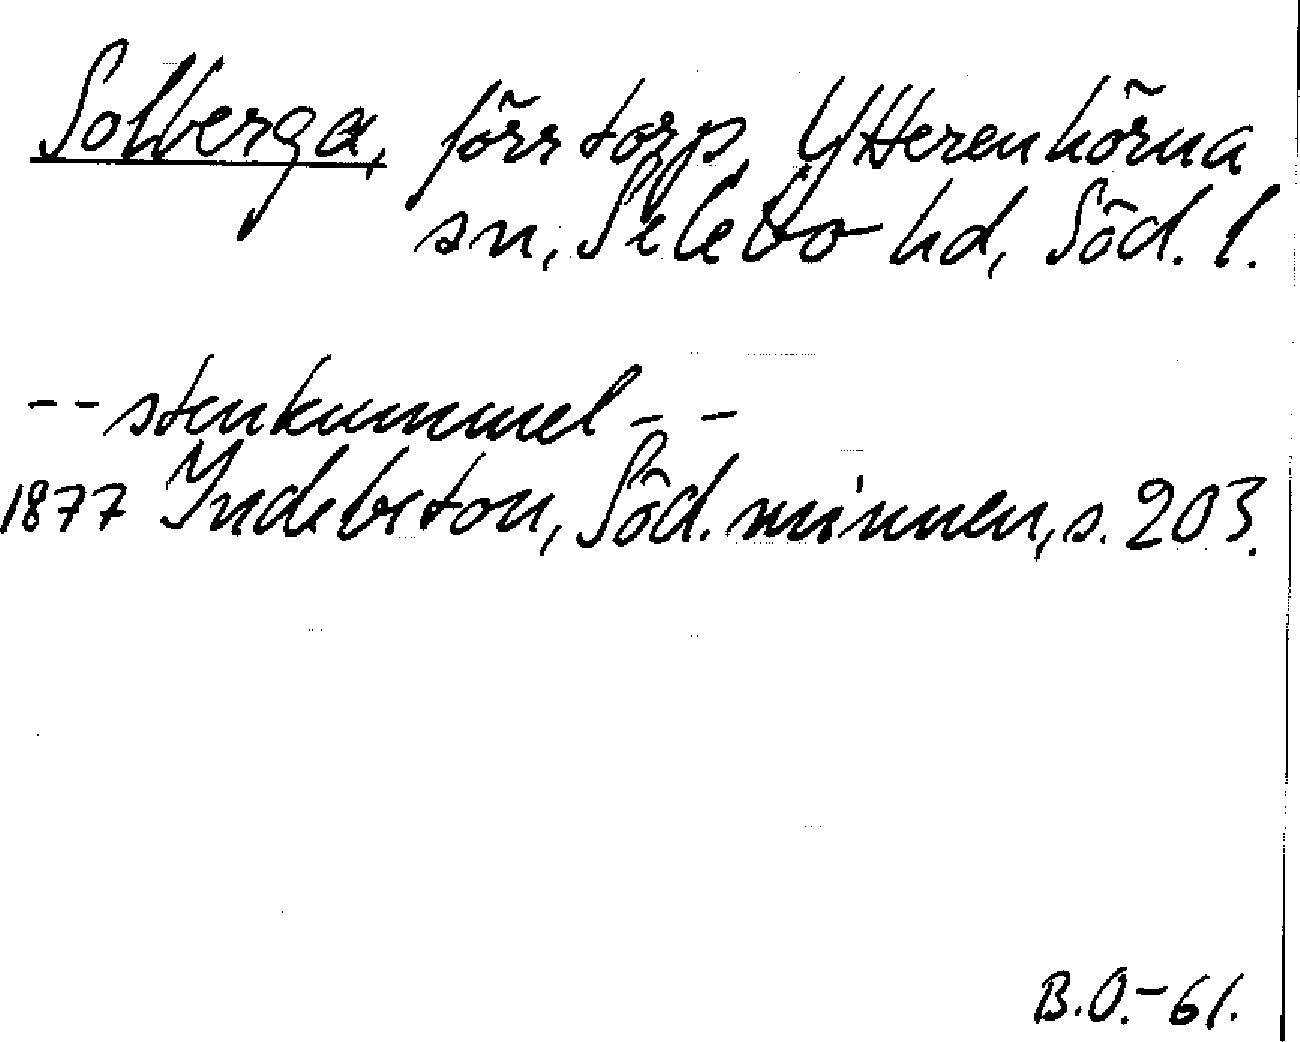 Solberga, förr torp, Ytterenhörna
sn, Selebo hd, Söd. l.
-- stenkummel --
1877 Indebetou, Söd. minnen, s. 203.
B.O.-61.